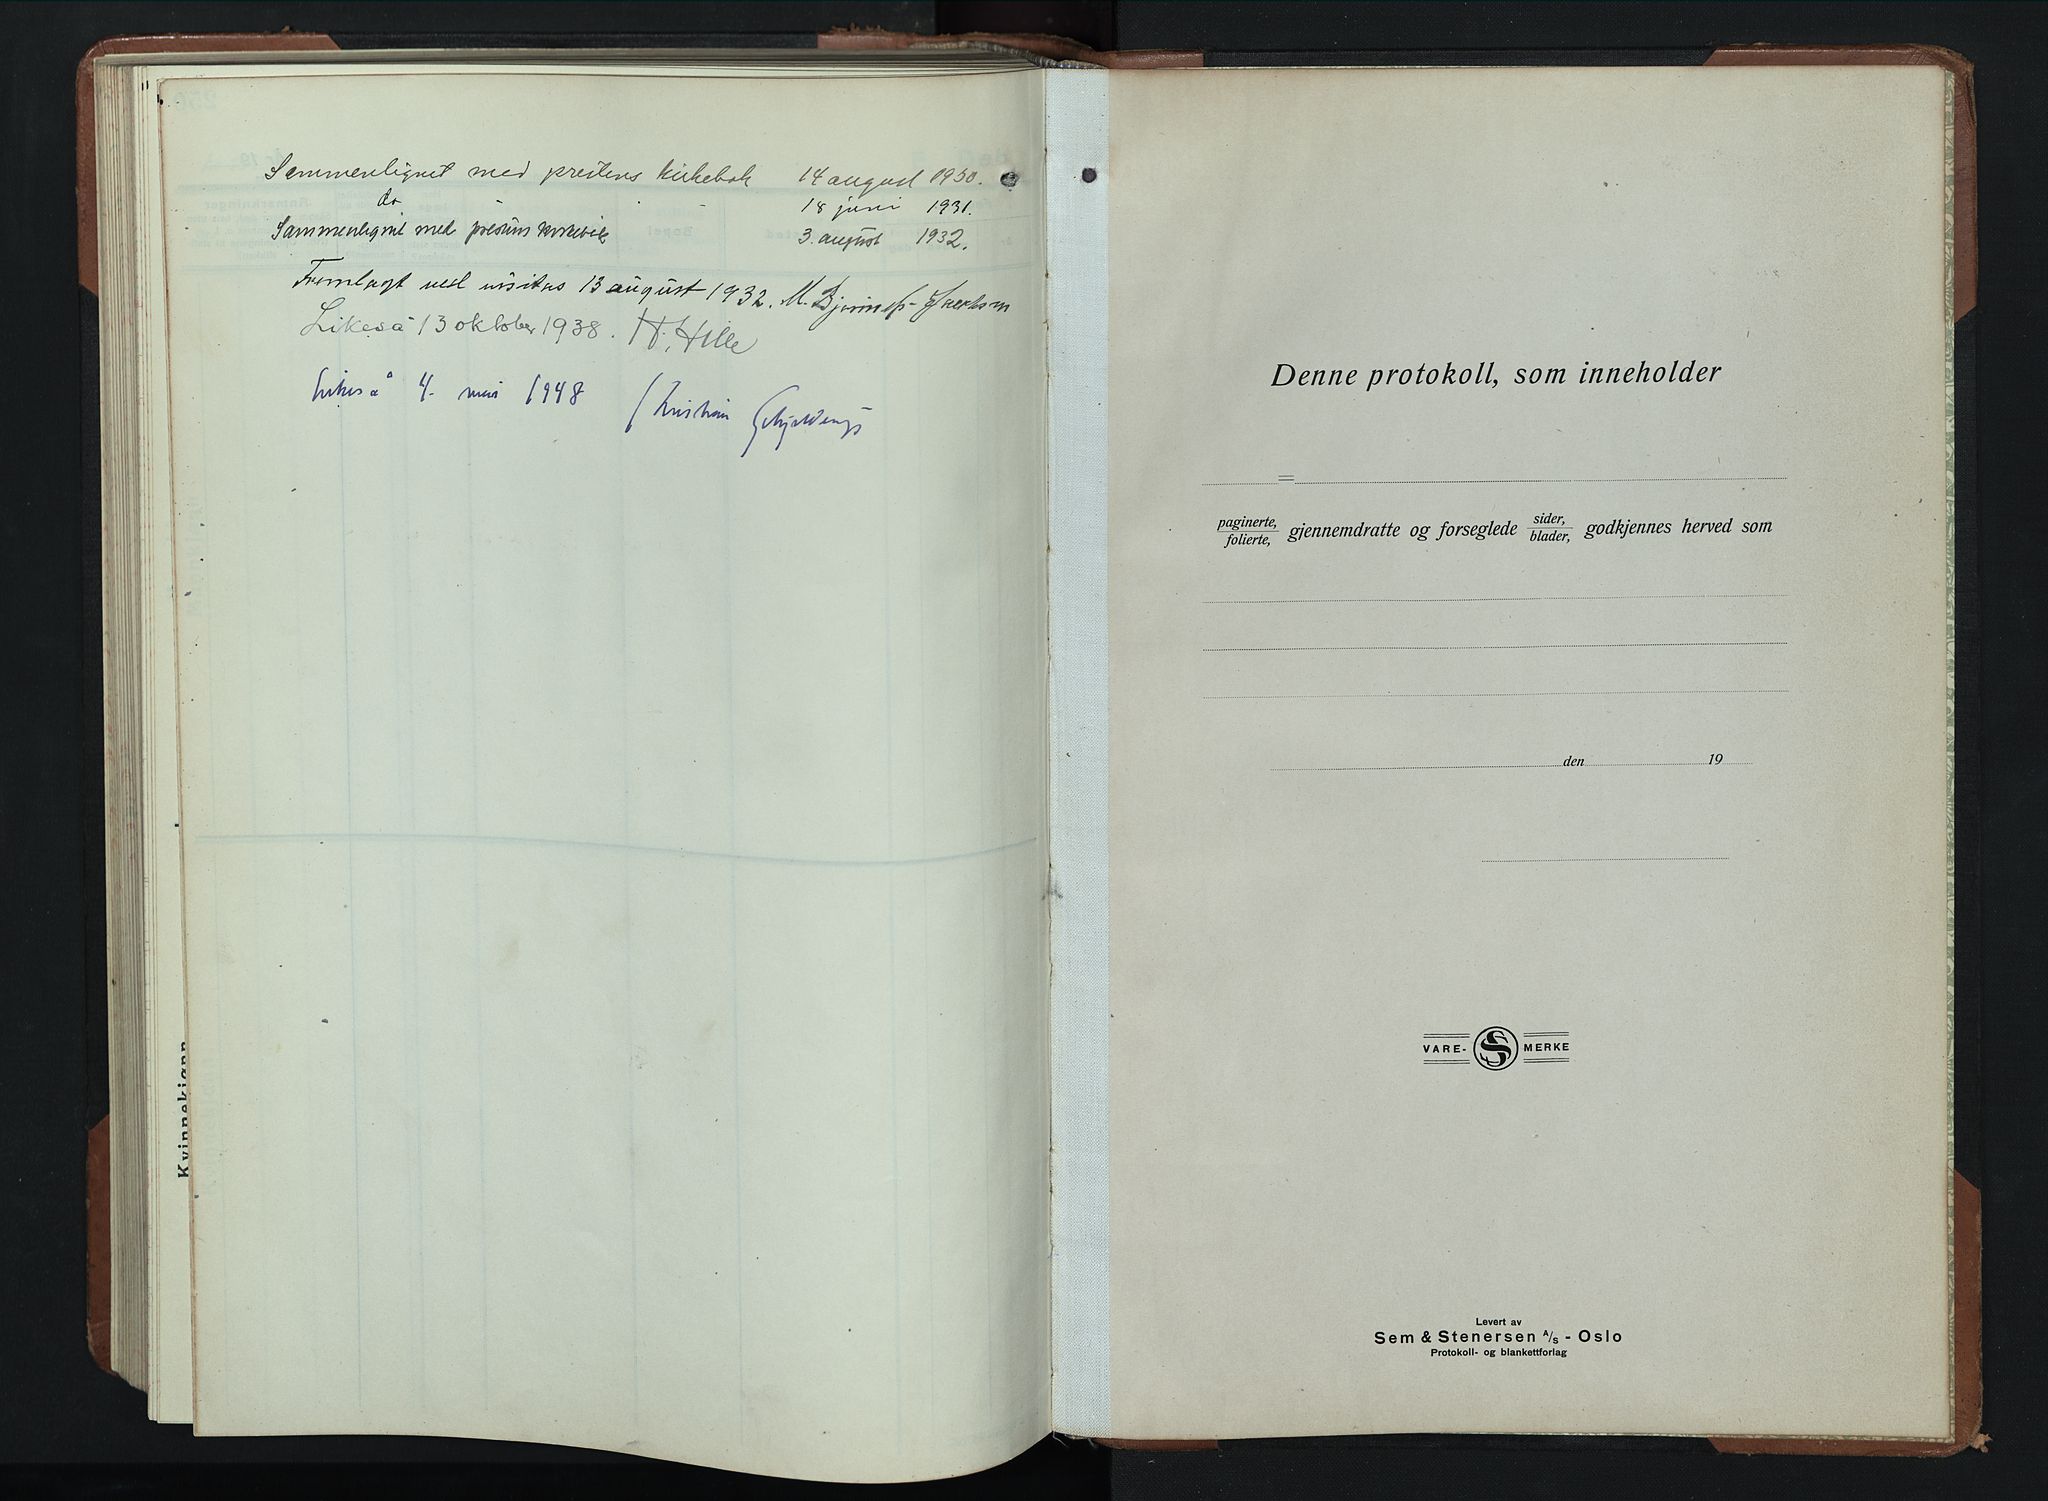 Sammenlignet med prestens kirkebok 14 august 1930.
do 18 juni 1931.
Sammenlignet med prestens kirkebok 3. august 1932.
Fremlagt ved visitas 13 august 1932. M. Bjønness-Jacobsen
Likeså 13 oktober 1938. H. Hille
Likeså 4. mai 1948 Kristian Schjelderup
Kvinnekjønn
Denne protokoll, som inneholder
=
paginerte, folierte, gjennemdratte og forseglede sider, blader, godkjennes herved som
den 19
VARE- S MERKE
Levert av
Sem & Stenersen A/S - Oslo
Protokoll- og blankettforlag